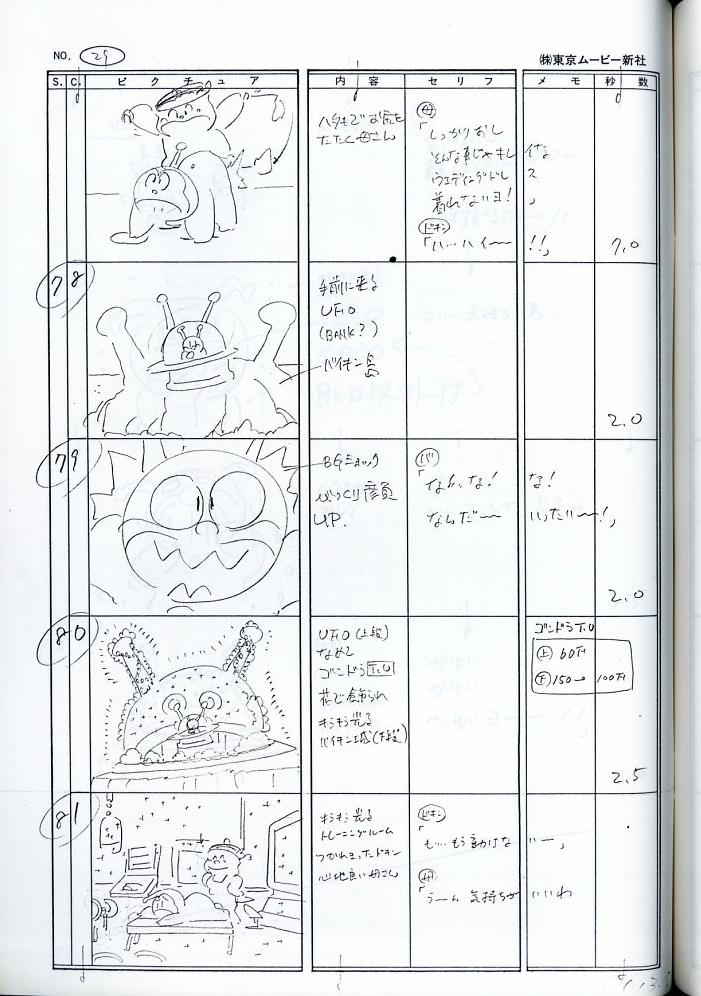 NO. 29
㈱東京ムービー新社
S. C. ピクチュア 内容 セリフ メモ 秒数
ハタキでお尻を
たたく母さん
母
「しっかりおし
そんな事じゃキレイな
ウエディングドレス
着れないヨ!」
ドキン
「ハ…ハイ〜〜!!」
7.0
78
手前に来る
UFO
(BANK?)
バイキン島
2.0
79
BGショック
びっくり彦頁
UP.
バ
「なんだ〜〜
2.0
80
UFO(上段)
なめて
ゴンドラT.U
花で飾られ
キラキラ光る
バイキン城(下段)
ゴンドラT.U
上 60Fr
下 150→100Fr
2.5
81
キラキラ光る
トレーニングルーム
つかれきったドキン
心地良い母さん
ドキン
「も…もう動けないー」
母
「うーん 気持ちがいいわ